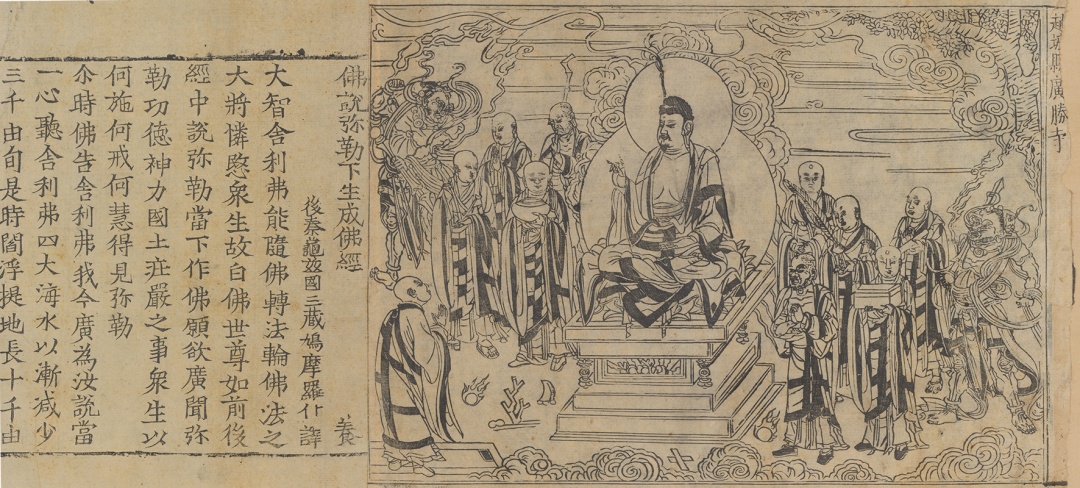 趙城縣廣勝寺
佛說弥勒下生成佛經 養
後秦龜茲國三藏鳩摩羅什譯
大智舍利弗能隨佛轉法輪佛法之
大將憐愍衆生故白佛世尊如前後
經中說弥勒當下作佛願欲廣聞弥
勒功德神力國土莊嚴之事衆生以
何施何戒何慧得見弥勒
尒時佛告舍利弗我今廣為汝說當
一心聽舍利弗四大海水以漸减少
三千由旬是時閻浮提地長十千由